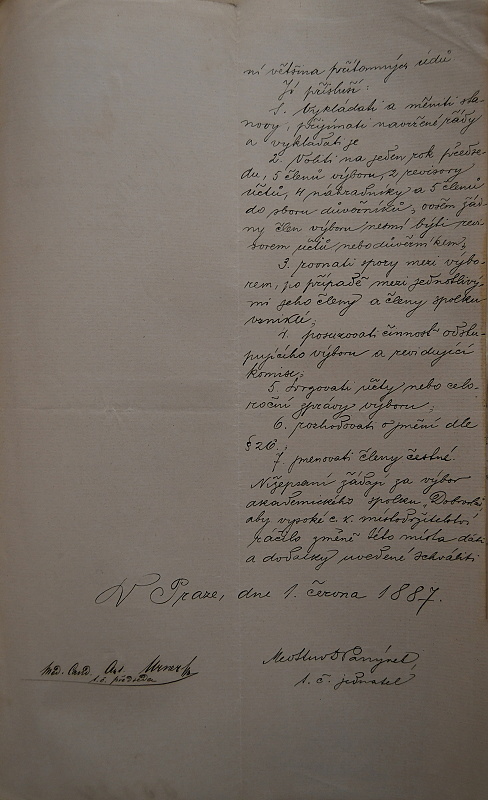 ní většina přítomných údů
Jí přísluší:
1. Vykládati a měniti sta-
novy, přijímati navržené řády
a vykládati je
2. Voliti na jeden rok předse-
du, 5 členů výboru, 2 revisory
účtů, 4 náhradníky a 5 členů
do sboru důvěrníků, ovšem žád-
ný člen výboru nesmí býti revi-
sorem účtů nebo důvěrníkem;
3. rovnati spory mezi výbo-
rem, po případě mezi jednotlivý-
mi jeho členy a členy spolku
vzniklé;
4. posuzovati činnost odstu-
pujícího výboru a revidující
komise;
5. účty nebo celo-
roční zprávy výboru;
6. rozhodovati o jmění dle
§ 26.;
7. jmenovati členy čestné.
Nížepsaní žádají za výbor
akademického spolku
aby vysoké c. k. místodržitelství
ráčilo změně této místa dáti
a dodatky uvedené schváliti
V Praze, dne 1. června 1887.
Med. Cand. Ant.
t. č. předseda
t. č. jednatel